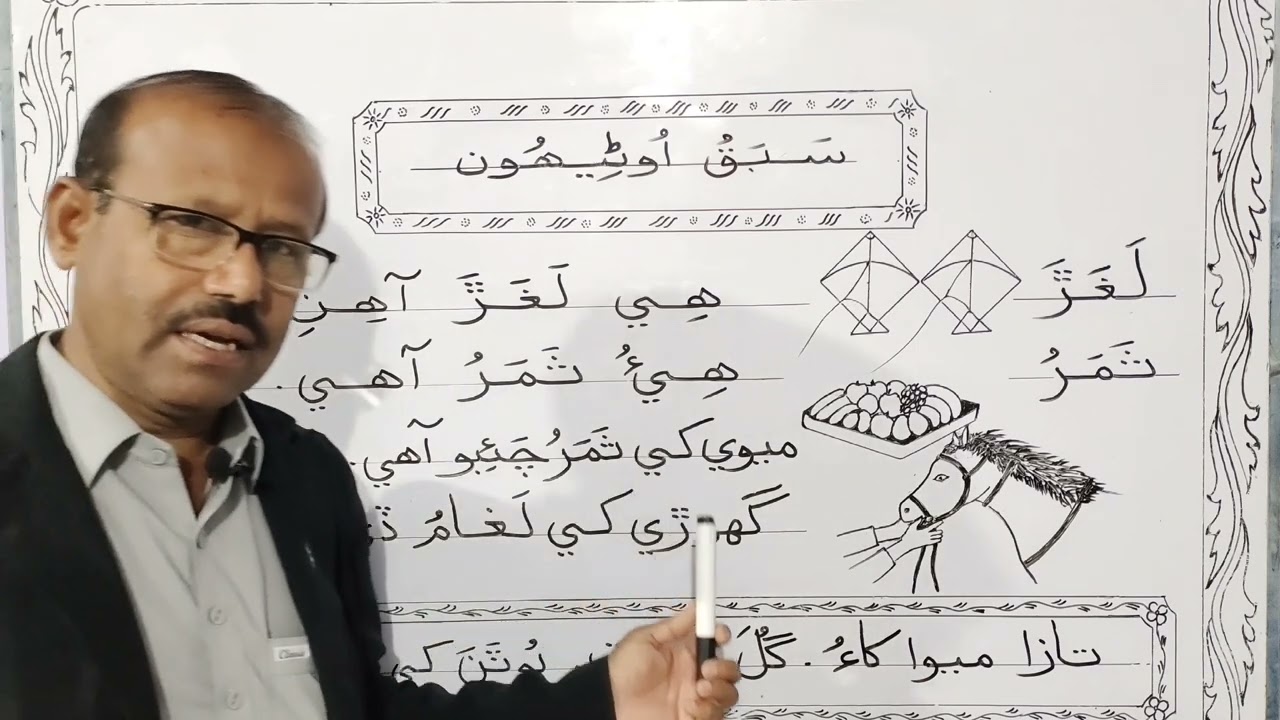 سَبَقُ اُوڻِيھُون
لَغَڙَ
هِي لَغَڙَ آهِنِ
ثَمَرُ
هِيءُ ثَمَرُ آهي.
ميوي کي ثَمَرُ چَئِبو آهي.
گهوڙي کي لَغامُ
تازا ميوا کاءُ. گُلَ ٻُوٽَنَ کي
Classic